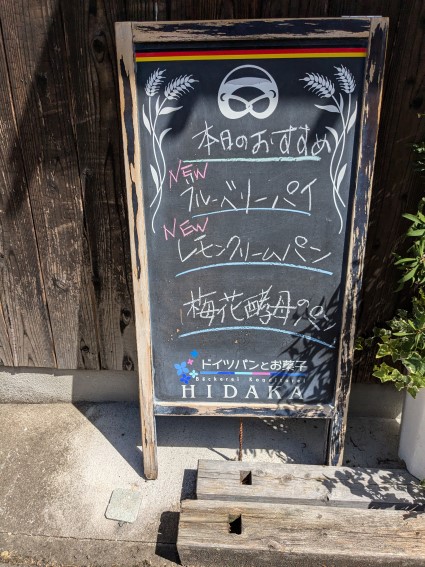 本日のおすすめ
NEW
ブルーベリーパイ
NEW
レモンクリームパン
梅花酵母のパン
ドイツパンとお菓子
Bäckerei Konditorei
HIDAKA